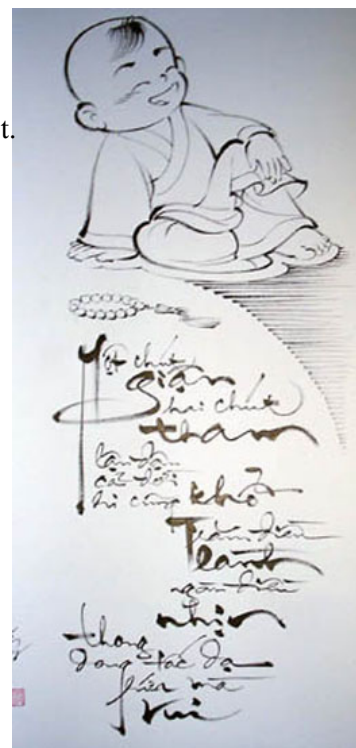 t.
Một chút
giận
hai chút
tham
lận đận
cả đời
ri cũng khổ
Trăm điều
lành
ngàn điều
nhịn
thong
dong tấc dạ
mà
vui